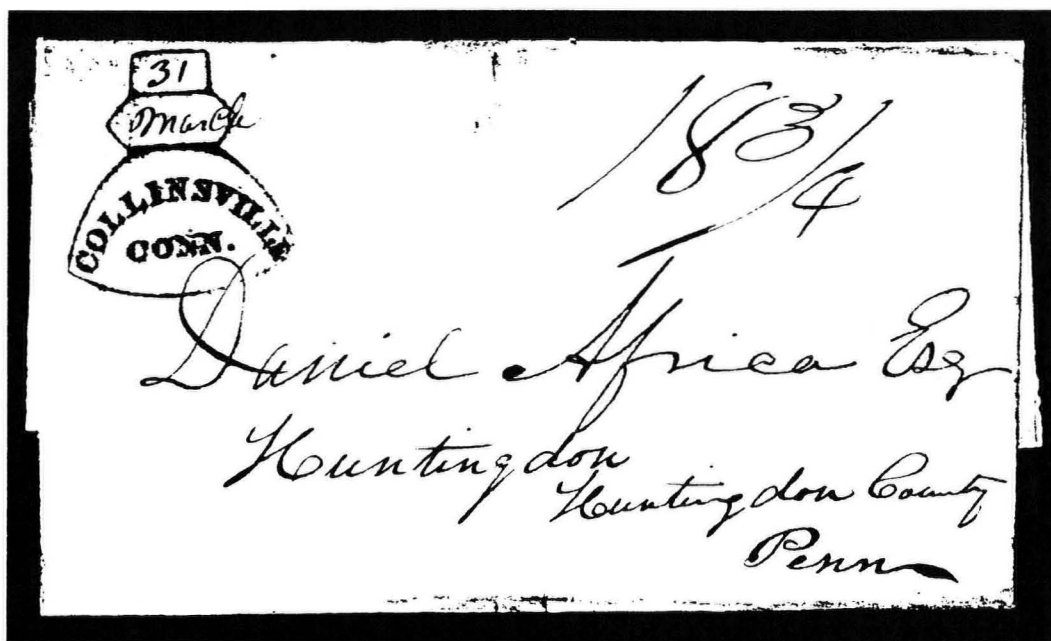 31
March
COLLINSVILLE
CONN.
18 3/4
Daniel Africa Esq
Huntingdon
Huntingdon County
Penn